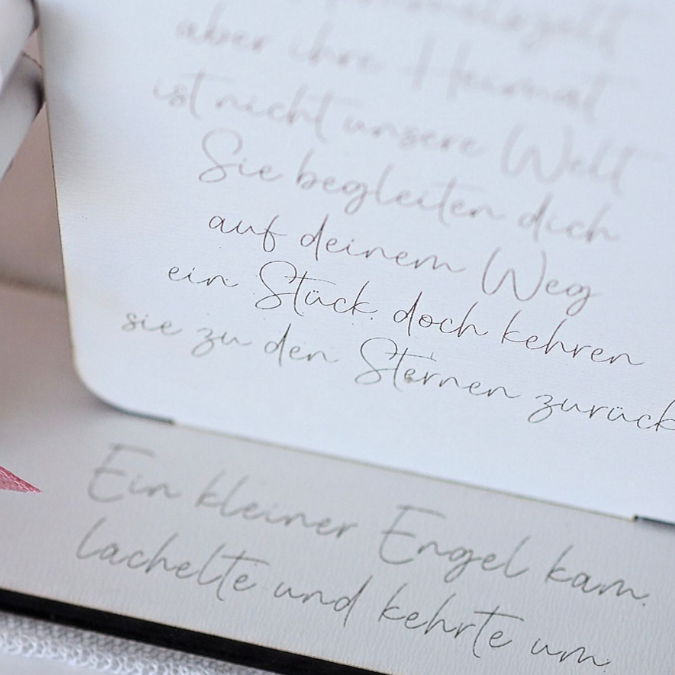 aber ihre Heimat
ist nicht unsere Welt
Sie begleiten dich
auf deinem Weg
ein Stück, doch kehren
sie zu den Sternen zurück
Ein kleiner Engel kam,
lachelte und kehrte um.